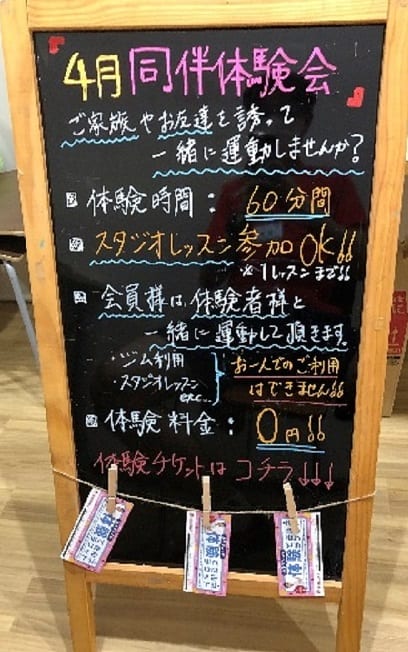 4月同伴体験会
ご家族やお友達を誘って
一緒に運動しませんか?
体験時間: 60分間
スタジオレッスン参加OK!!
※1レッスンまで!!
会員様は、体験者様と
一緒に運動して頂きます。
・ジム利用
・スタジオレッスン
etc...
お一人でのご利用
はできません!!
体験料金: 0円!!
体験チケットはコチラ↓↓↓